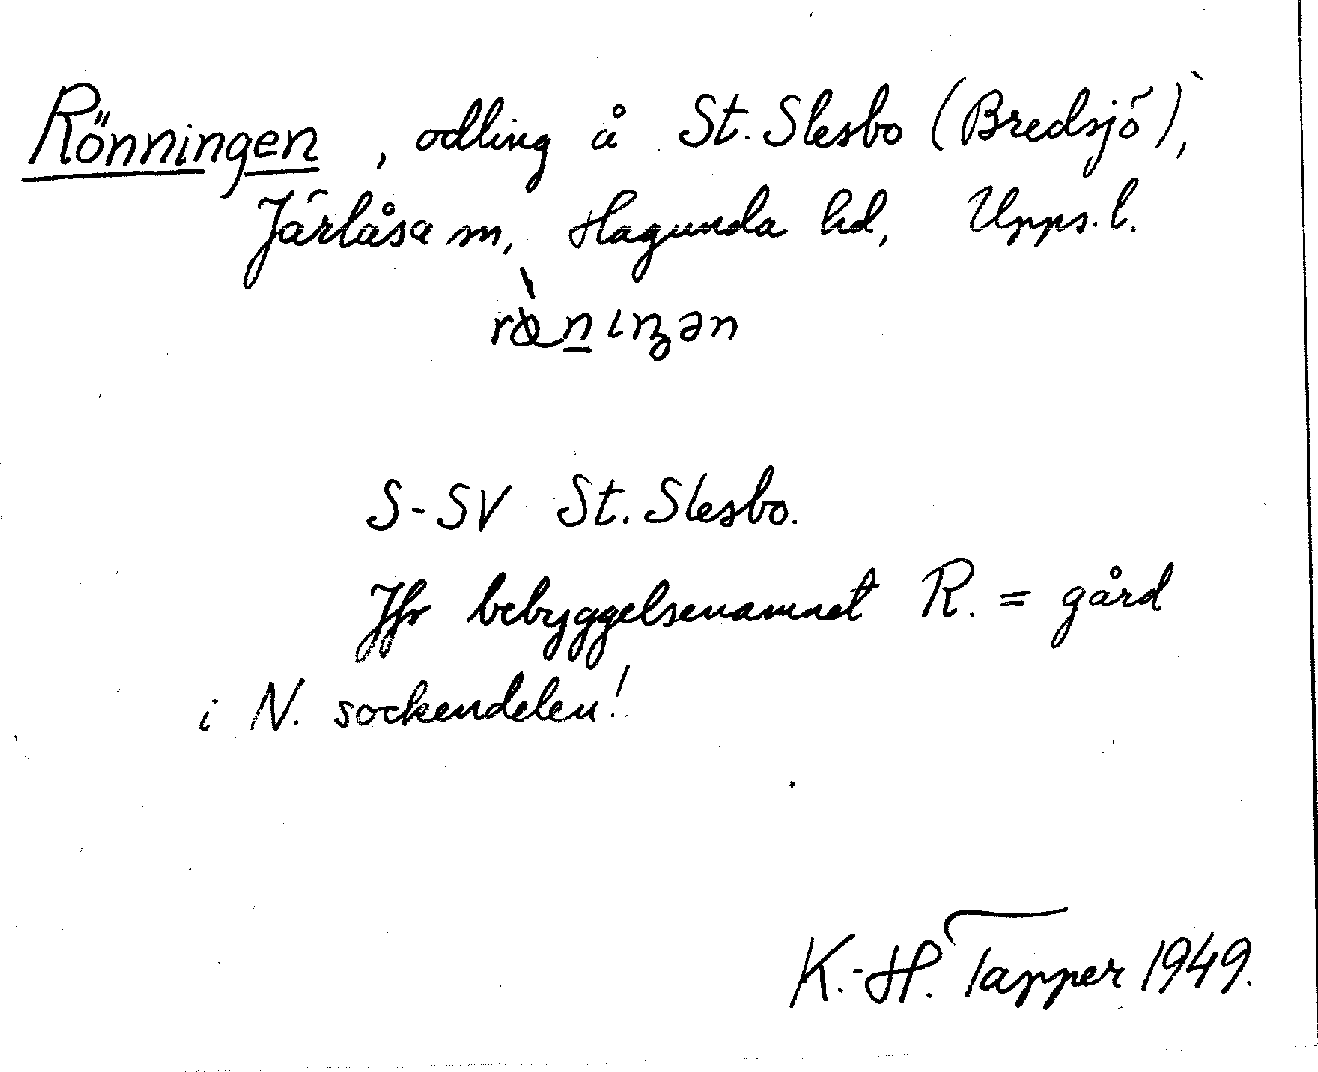 Rönningen, odling å St. Slesbo (Bredsjö),
Järlåsa sn, Hagunda hd, Upps. l.
S-SV St. Slesbo.
Jfr bebyggelsenamnet R. = gård
i N. sockendelen!
K.-H. Tapper 1949.